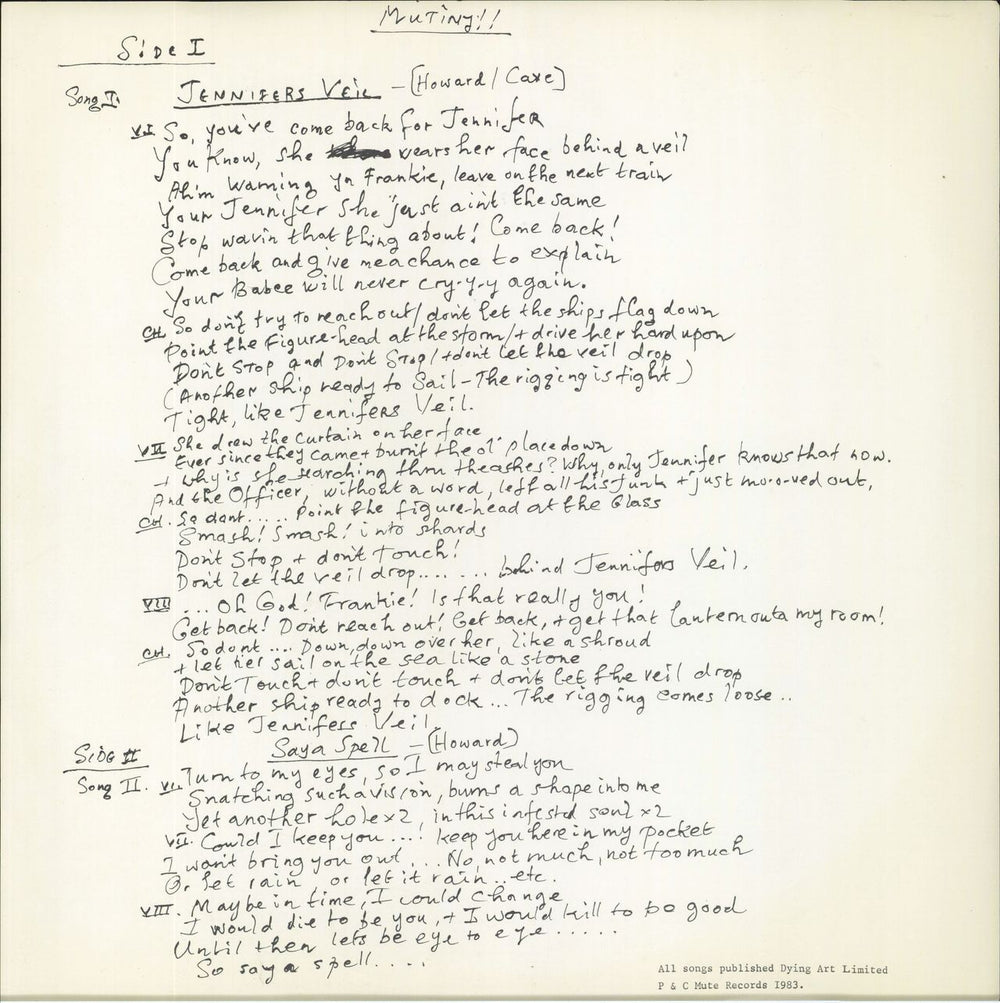 MUTINY!!
Side I
Song I. JENNIFERS VEIL - [Howard / Cave]
V.I So, you've come back for Jennifer
You know, she wears her face behind a veil
Ah'm warning ya Frankie, leave on the next train
Your Jennifer she just ain't the same
Stop wavin that thing about! Come back!
Come back and give me a chance to explain
Your Babee will never cry-y-y again.
CH. So don't try to reach out / don't let the ships flag down
Point the Figure-head at the storm / + drive her hard upon
Don't Stop and Don't Stop / + don't let the veil drop
(Another ship ready to Sail - The rigging is tight)
Tight, like Jennifers Veil.
VII She drew the curtain on her face
Ever since they came + burn't the ol' place down
+ Why is she searching thru the ashes? Why, only Jennifer knows that now.
And the Officer, without a word, left all his junk + just mo-o-ved out,
CH. So dont..... Point the figure-head at the Glass
Smash! Smash! into shards
Don't Stop + don't Touch!
Don't let the veil drop....... behind Jennifers Veil.
VIII ... Oh God! Frankie! Is that really you!
Get back! Dont reach out! Get back, + get that lantern outa my room!
CH. So dont .... Down, down over her, like a shroud
+ let her sail on the sea like a stone
Don't Touch + don't touch + don't let the veil drop
Another ship ready to dock... The rigging comes loose..
Like Jennifers Veil.
Side II Say a Spell - [Howard]
Song II. VI. Turn to my eyes, so I may steal you
Snatching such a vision, burns a shape into me
Yet another hole x2, in this infested soul x2
VII. Could I keep you...! keep you here in my pocket
I won't bring you out.... No, not much, not too much
Or let rain or let it rain.. etc.
VIII. Maybe in time, I could change
I would die to be you, + I would kill to be good
Until then lets be eye to eye......
So say a spell....
All songs published Dying Art Limited
P & C Mute Records 1983.